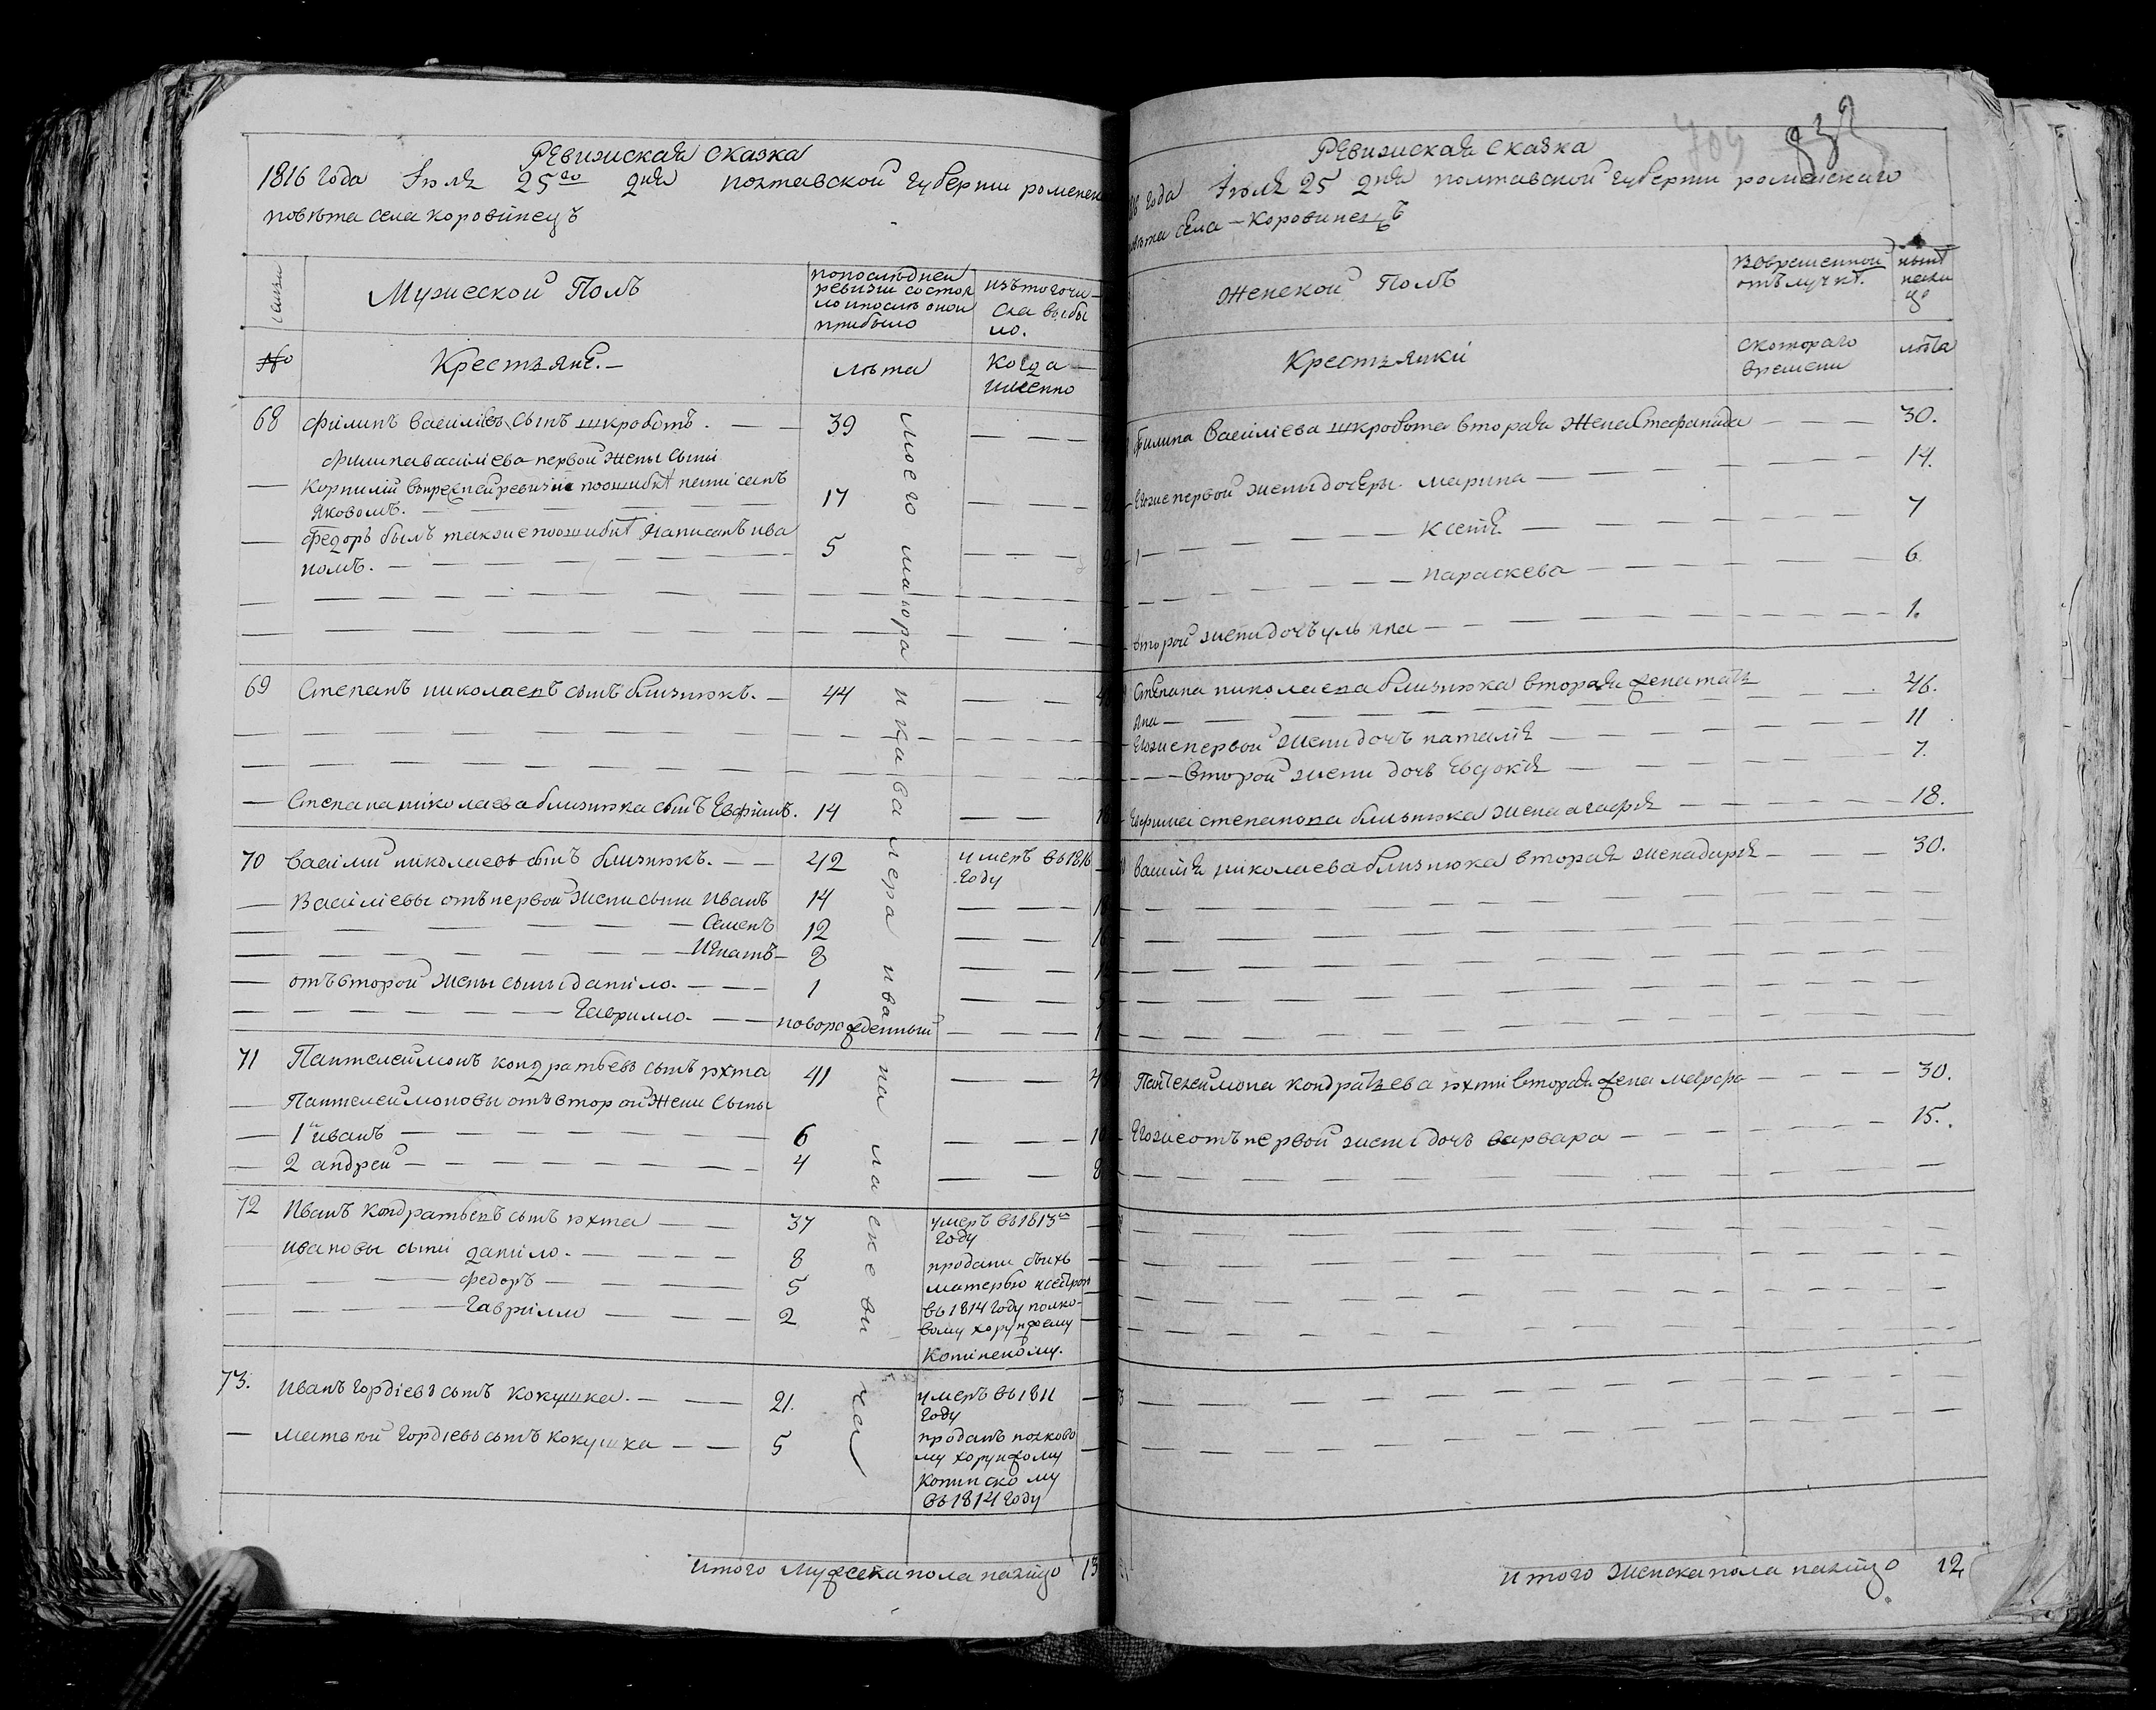 Ревизская сказка
1816 года Iюля 25го дня полтавской губернии роменск
повѣта села коровинецъ
Мужеской Полъ
попоследнеи
ревизи состоя
ло ипослѣ оной
прибыло
изътогочи
сла выбы
ло.
№
Крестьяне.
Лѣта
Когда
именно
68 Филипъ василієвъ сынъ шкроботъ. 39
Филипавасилієва первой жены сыни
Корнилій впрежней ревизие поошибкѣ написанъ
яковомъ. 17
Федоръ былъ такжепоошибкѣ написанъ ива
номъ. 5
69 Степанъ николаевъ сынъ близнюкъ. 44
Степана николаева близнюка сынъ Евфимъ. 14
70 василий николаевъ сынъ близнюкъ. 42 умеръ въ1816
году
Василієвы отъ первой жени сыни Иванъ 14
Семенъ 12
Игнатъ 8
отъ второй жены сыны данило. 1
Гаврилло. новорожденный
71 Пантелеймонъ кондратьевъ сынъ юхта 41
Пантелеймоновы отъ второй жени сыны
1й иванъ 6
2 андрей 4
72 Иванъ Кондратьевъ сынъ юхта 37 умеръ въ1813м
году
ивановы сыни данило. 8 продани съихъ
федоръ 5 матерью исестрою
Гаврилло 2 въ1814 году полко-
вому хорунжему
Котинскому.
73. Иванъ гордіевъ сынъ Кокушка. 21. умеръ въ1811
году
матвѣй гордіевъ сынъ кокушка 5 проданъ полково
му хорунжому
котинскому
въ1814 году
Моего маиора и кавалера ивана ласкевича
итого мужескапола налицо 13
709 832
Ревизская сказка
года Iюля 25 дня полтавской губерни роменскаго
села Коровинецъ
Женской Полъ
Вовременной
отълучкѣ.
нынѣ
нали
цо
Крестьянки
скотораго
времени
лѣта
Филипа василієва шкробота вторая жена Стефанида 30.
Егожепервой жены дочеры. марина 14.
ксенія 7
параскева 6.
второй жени дочъ ульяна 1.
Степана николаева близнюка вторая жена тать
яна 46.
Егожепервой жени дочъ наталія 11
второй жени дочь Евдокія 7.
Евфима степанова близнюка жена агафія 18.
василія николаева близнюка вторая женадарія 30.
Пантелеймона кондратьева юхти вторая жена мавра 30.
Егожеотъ первой жены дочъ варвара 15.
итого женскапола налицо 12